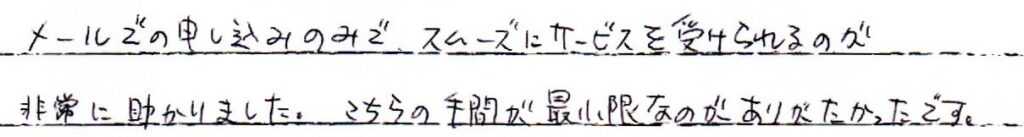 メールでの申し込みのみで、スムーズにサービスを受けられるのが
非常に助かりました。こちらの手間が最小限なのがありがたかったです。